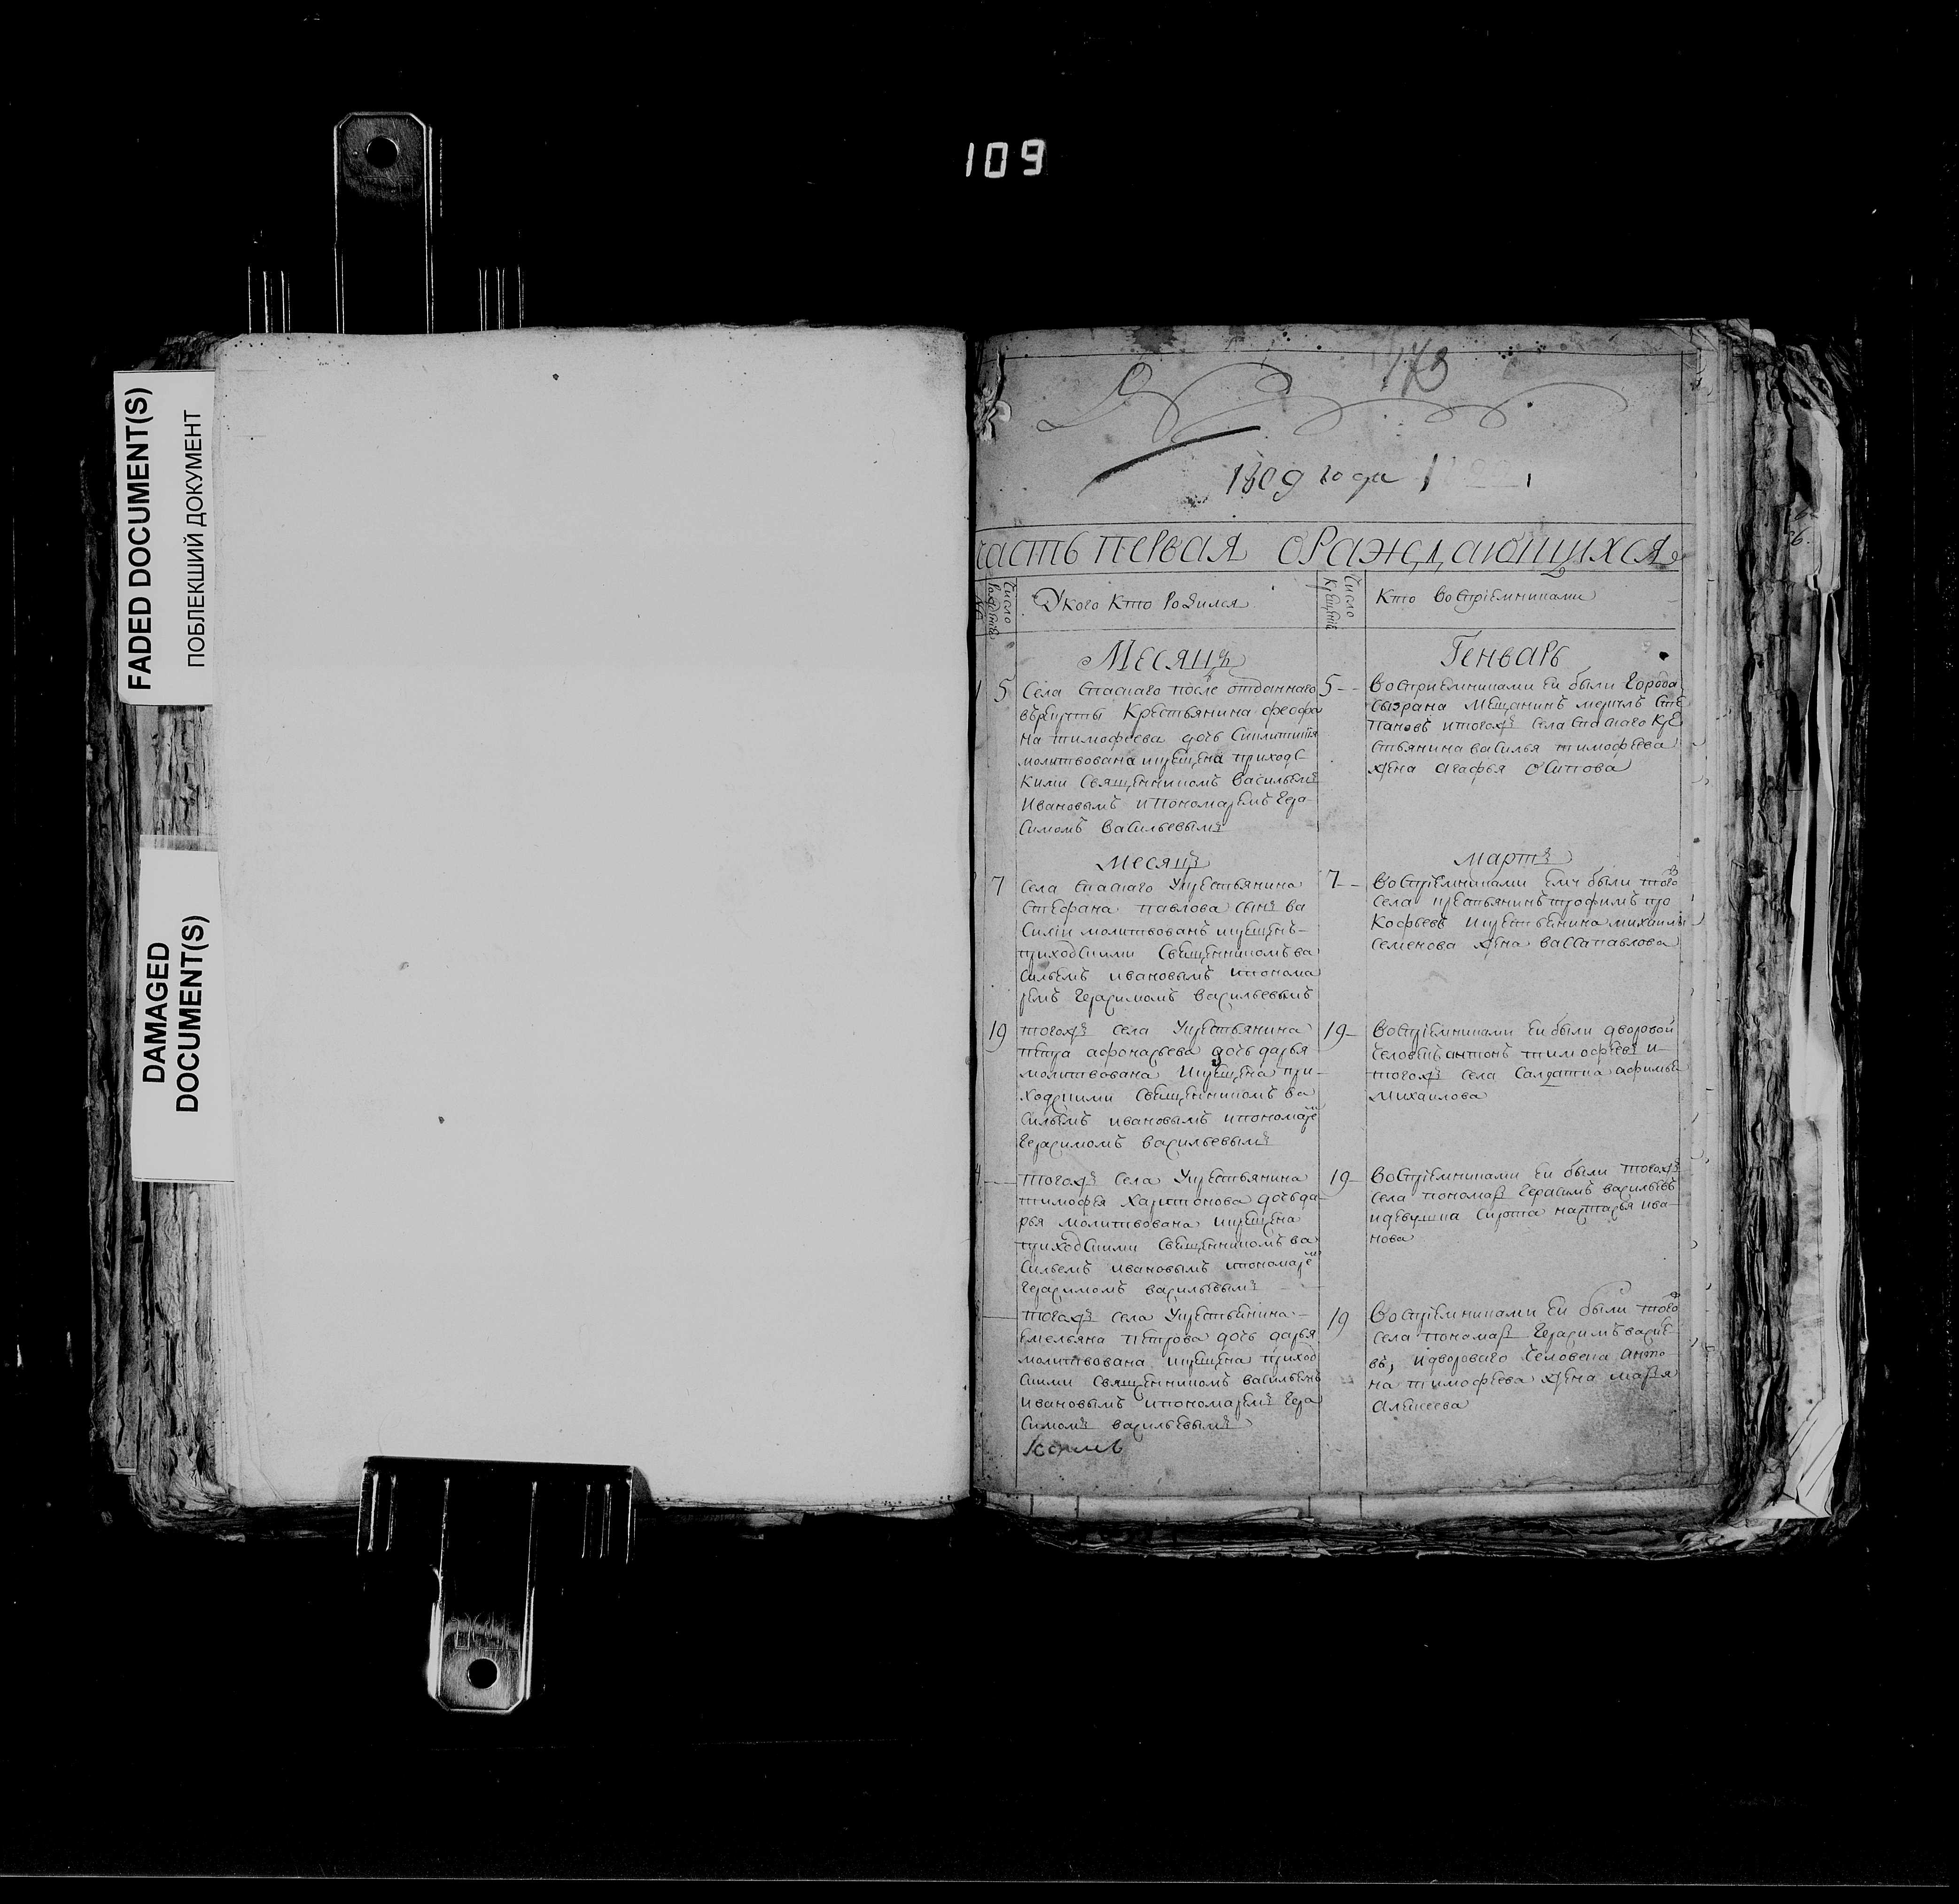 109
FADED DOCUMENT(S)
ПОБЛЕКШИЙ ДОКУМЕНТ
DAMAGED
DOCUMENT(S)
173
1809 года
часть первая о раждающихся
Число рождения
У кого кто родился
Число крещения
Кто восприемниками
Месяцъ
Генварь
1
5
Села Спаскаго после отданнаго
въ рекруты Крестьянина феофа
на тимофеева дочь Синклитикия
молитвована и крещена приходс
кими Священникомъ Василиемъ
Ивановымъ и Пономаремъ Гера
симомъ Васильевымъ
5
Восприемниками ей были Города
Сызрана Мещанинъ Степановъ и тогожъ села Спаскаго Кре
стьянина василья тимофеева
жена агафья Осипова
Месяцъ
Мартъ
7
Села Спаскаго крестьянина
Стефана павлова сынъ ва
силий молитвованъ и крещенъ
приходскими Священникомъ ва
сильемъ ивановымъ и понома
ремъ Герасимомъ Васильевымъ
7
Восприемниками ему были того
села крестьянинъ трофимъ про
кофьевъ и крестьянина михаилы
семенова жена васса павлова
19
тогожъ села крестьянина
петра дочь дарья
молитвована и крещена при
ходскими Священникомъ ва
сильемъ ивановымъ и пономаре
Герасимомъ Васильевымъ
19
Восприемниками ей были дворовой
человекъ антонъ тимофеевъ и
тогожъ села Салдатка афимья
Михаилова
тогожъ села крестьянина
тимофея Харитонова дочь да
рья молитвована и крещена
приходскими Священникомъ ва
сильемъ ивановымъ и пономаре
Герасимомъ васильевымъ
19
Восприемниками ей были тогожъ
села пономарь Герасимъ васильевъ
и девушка сирота настасья ива
нова
тогожъ села крестьянина
емельяна петрова дочь дарья
молитвована и крещена приход
скими Священникомъ васильемъ
ивановымъ и пономаремъ Гера
симомъ васильевымъ
19
Восприемниками ей были того
села пономарь Герасимъ василье
въ, и дворового человека анто
на тимофеева жена марья
Алексеева